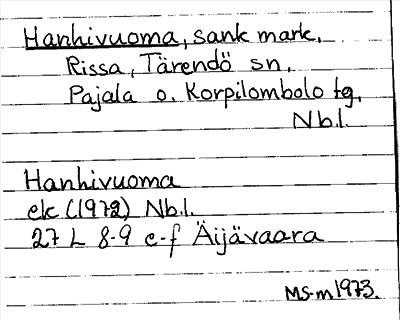 Hanhivuoma, sank mark.
Rissa, Tärendö sn.
Pajala o. Korpilombolo tg.
Nb.l.
Hanhivuoma
ek (1972) Nb.l.
27 L 8-9 e-f Äijävaara
MS-m 1973.